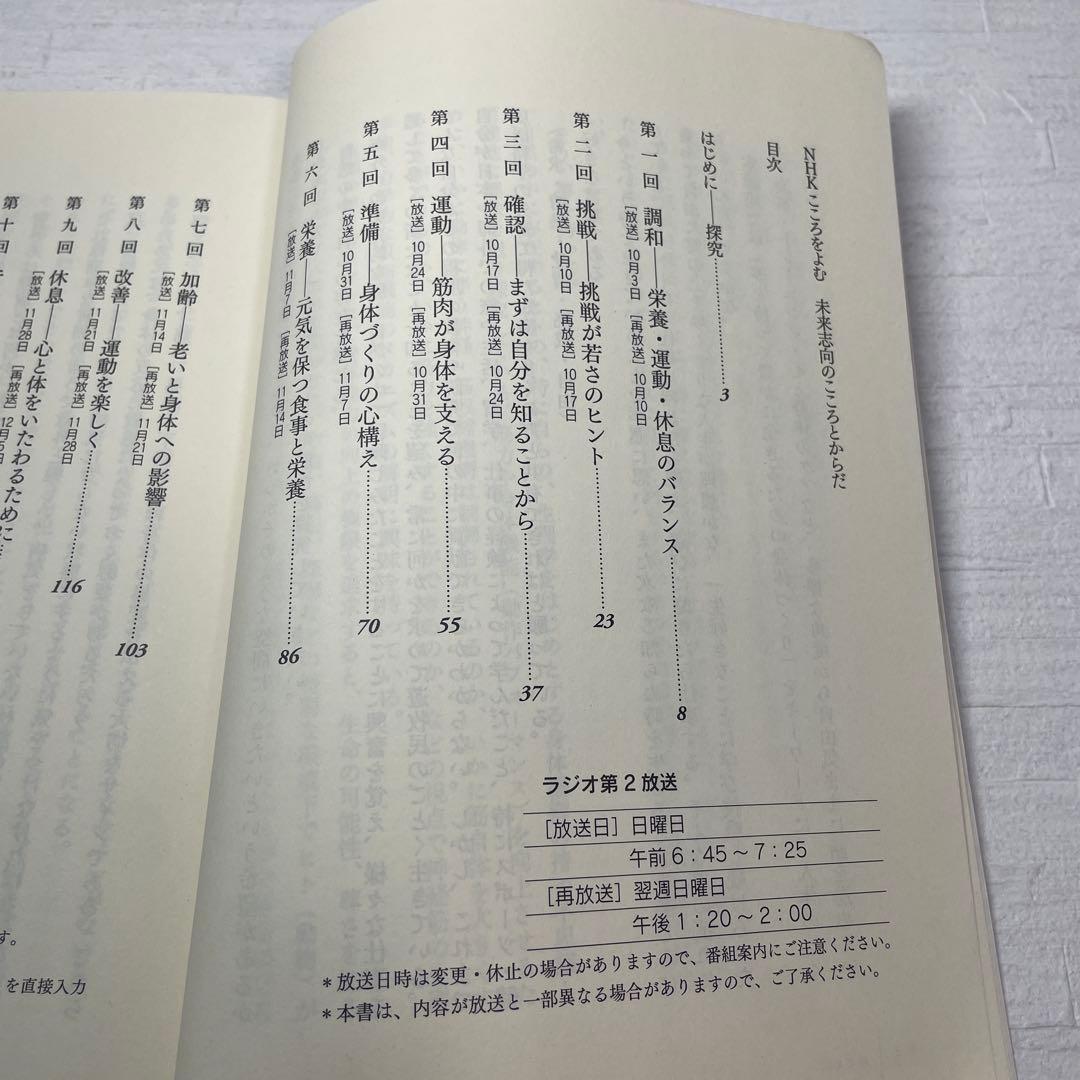 NHK こころをよむ 未来志向のこころとからだ
目次
はじめに――探究……………3
第一回 調和――栄養・運動・休息のバランス……………8
[放送] 10月3日 [再放送] 10月10日
第二回 挑戦――挑戦が若さのヒント……………23
[放送] 10月10日 [再放送] 10月17日
第三回 確認――まずは自分を知ることから……………37
[放送] 10月17日 [再放送] 10月24日
第四回 運動――筋肉が身体を支える……………55
[放送] 10月24日 [再放送] 10月31日
第五回 準備――身体づくりの心構え……………70
[放送] 10月31日 [再放送] 11月7日
第六回 栄養――元気を保つ食事と栄養……………86
[放送] 11月7日 [再放送] 11月14日
ラジオ第2放送
[放送日] 日曜日
午前6:45～7:25
[再放送] 翌週日曜日
午後1:20～2:00
＊放送日時は変更・休止の場合がありますので、番組案内にご注意ください。
＊本書は、内容が放送と一部異なる場合がありますので、ご了承ください。
第七回 加齢――老いと身体への影響……………103
[放送] 11月14日 [再放送] 11月21日
第八回 改善――運動を楽しく……………116
[放送] 11月21日 [再放送] 11月28日
第九回 休息――心と体をいたわるために……
[放送] 11月28日 [再放送] 12月5日
第十回
す。
を直接入力